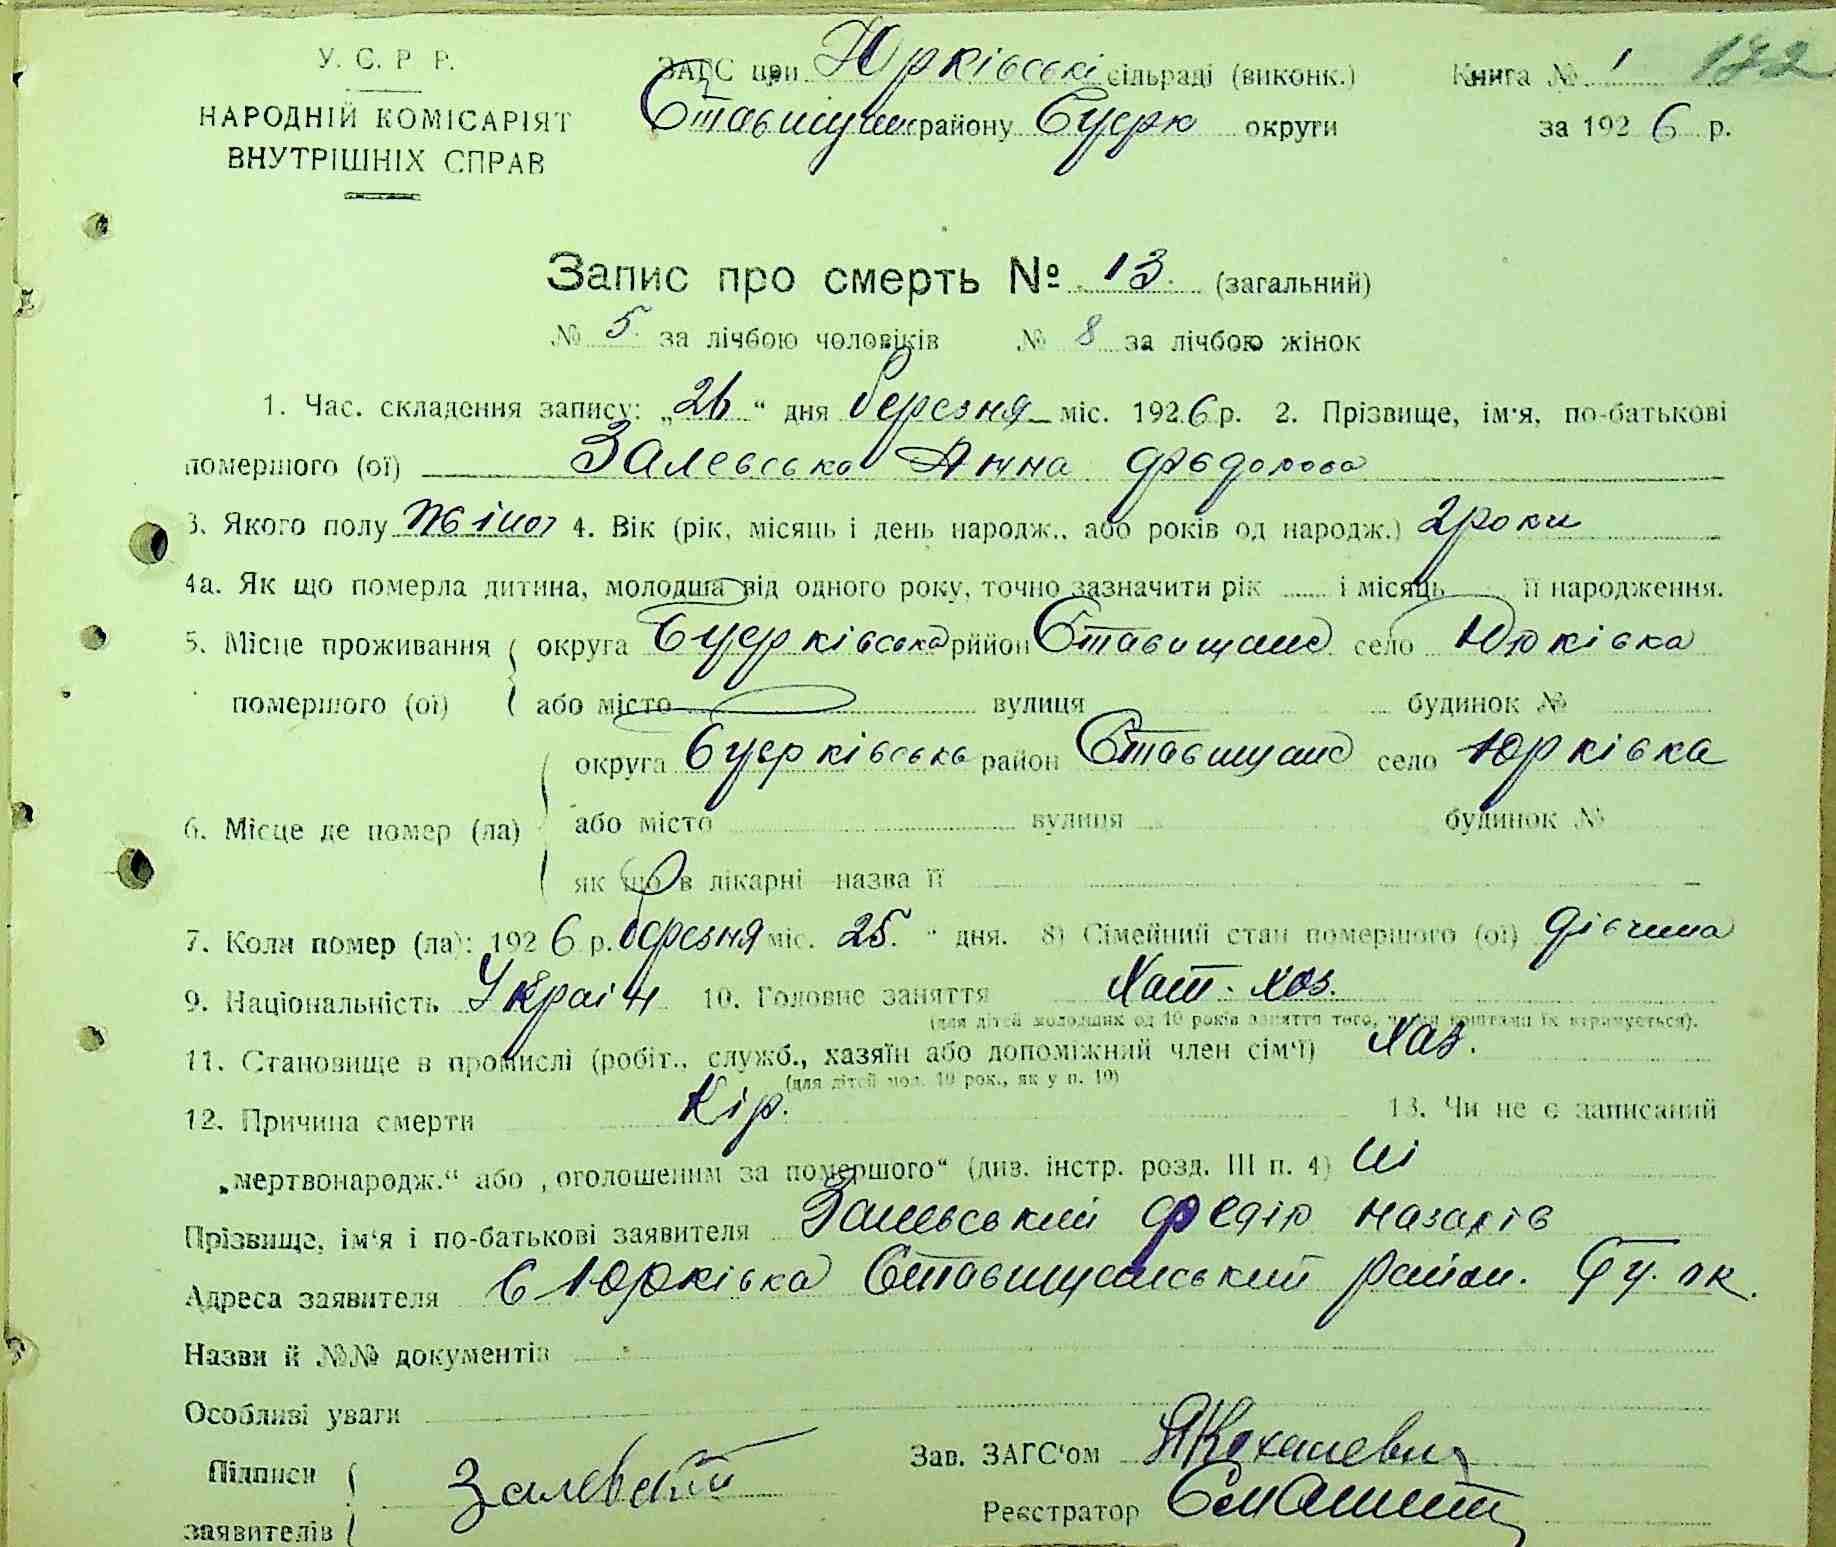 У. С. Р Р.
НАРОДНІЙ КОМІСАРІЯТ
ВНУТРІШНІХ СПРАВ
ЗАГС при Юрківські сільраді (виконк.)
району округи
Книга № 1 172
за 1926 р.
Запис про смерть № 13. (загальний)
№ 5. за лічбою чоловіків № 8 за лічбою жінок
1. Час. складення запису: „26“ дня березня міс. 1926 р. 2. Прізвище, ім'я, по-батькові
помершого (ої) Залевська Анна Федорова
3. Якого полу жіноч 4. Вік (рік, місяць і день народж., або років од народж.) 2 роки
4а. Як що померла дитина, молодша від одного року, точно зазначити рік і місяць її народження.
5. Місце проживання округа рийон село Юрківка
помершого (ої) або місто вулиця будинок №
округа район село Юрківка
6. Місце де помер (ла) або місто вулиця будинок №
як що в лікарні назва її
7. Коли помер (ла): 1926 р. березня міс. 25. " дня. 8) Сімейний стан помершого (ої) дівчина
9. Національність Україн 10. Головне заняття Хат. хоз.
(для дітей молодших од 10 років заняття того, чиїми коштами їх втримується).
11. Становище в промислі (робіт., служб., хазяїн або допоміжний член сім'ї) Хаз.
(для дітей мол. 10 рок., як у п. 10)
12. Причина смерти Кір. 13. Чи не є записаний
„мертвонародж.“ або „оголошеним за помершого“ (див. інстр. розд. III п. 4) ні
Прізвище, ім'я і по-батькові заявителя Залевський Федір Назарів
Адреса заявителя с Юрківка Ставищанський район. ок.
Назви й №№ документів
Особливі уваги
Підписи
заявителів Залевский
Зав. ЗАГС'ом
Реєстратор